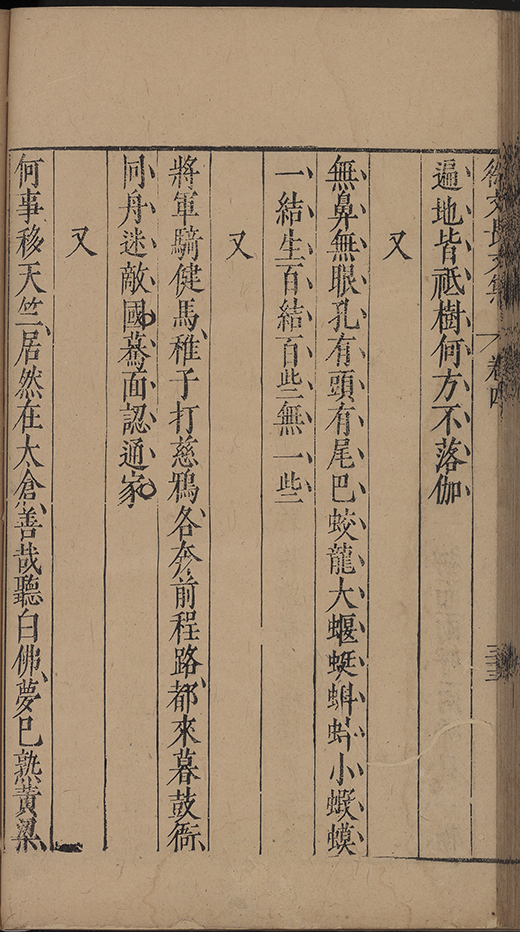 徐文長文集 卷四 三三
遍地皆祗樹何方不落伽
又
無鼻無眼孔有頭有尾巴蛟龍大蝘蜓蝌蚪小蝦蟆
一結生百結百些無一些
又
將軍騎健馬稚子打慈鴉各奔前程路都來暮鼓衙
同舟迷敵國驀面認通家
又
何事移天竺居然在太倉善哉聽白佛夢巳熟黃粱